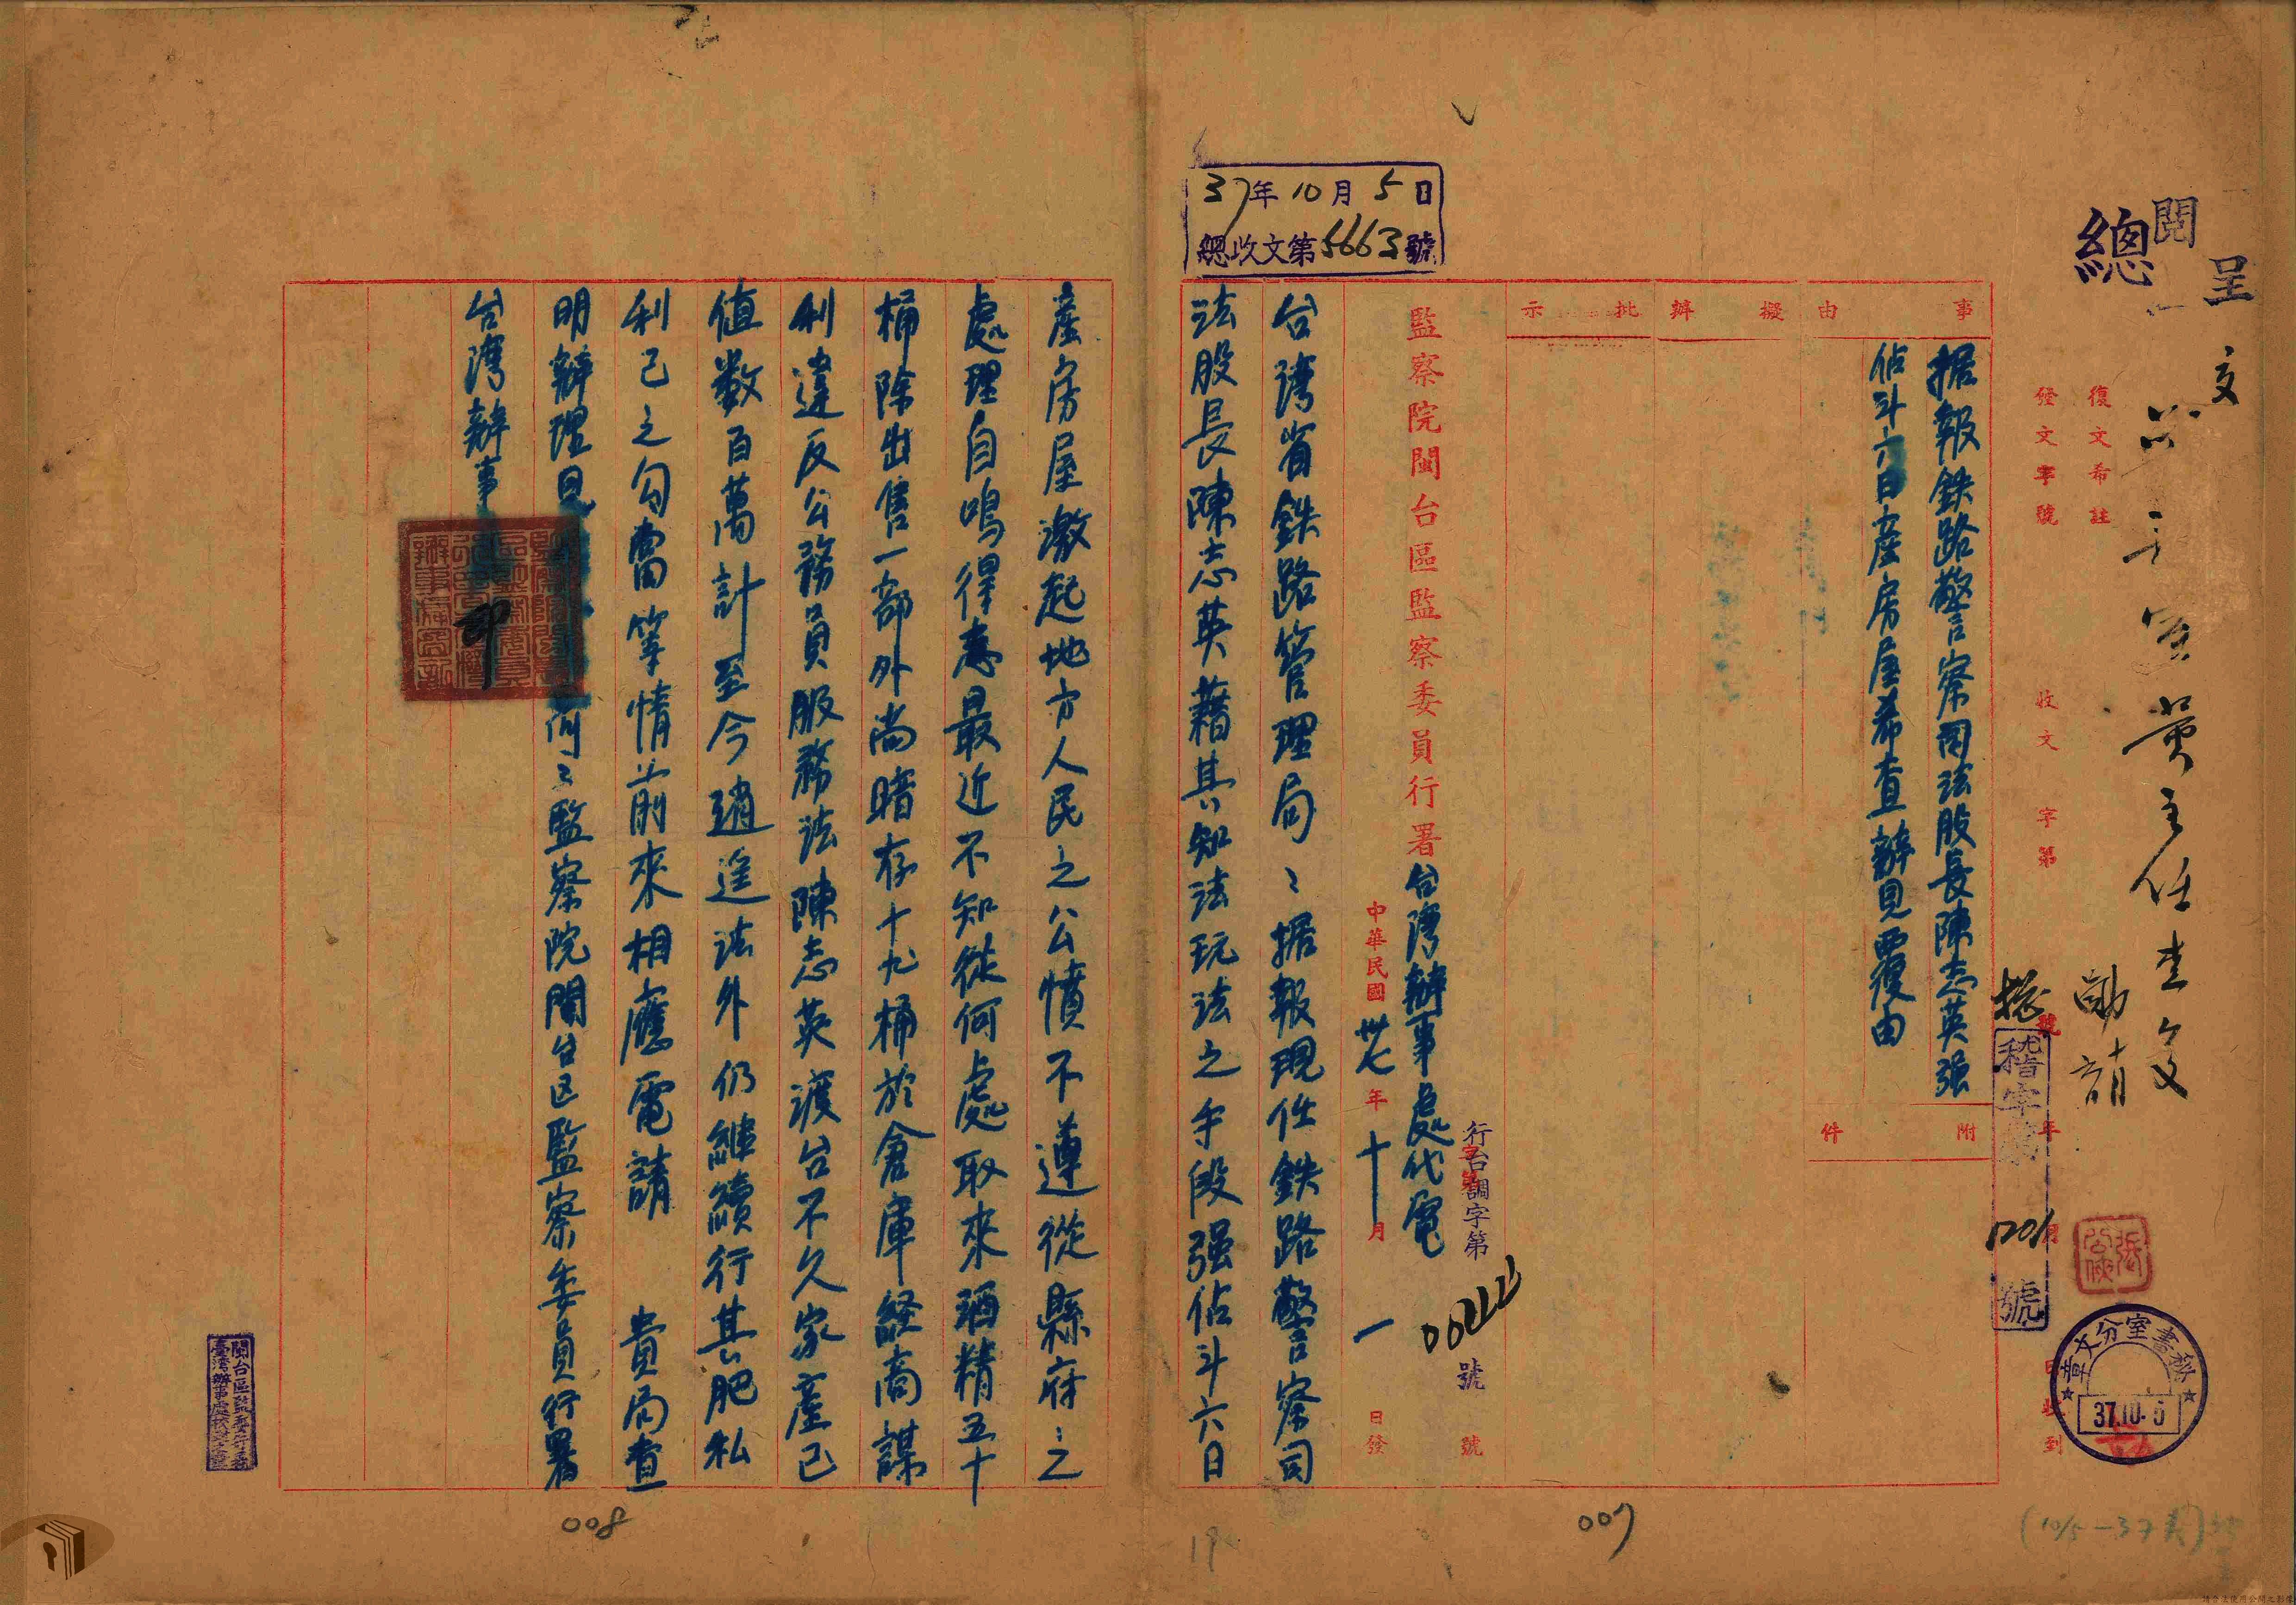 呈
閱
總
文
黃主任查文
復文希註
發文字號
收文 字第 號
年 月 日收到
稽字第1201號
秘書室分文章
37.10.5
事由
據報鉄路警察司法股長陳志英强
佔斗六日産房屋希查辦見覆由
附件
擬辦
批示
監察院閩台區監察委員行署台灣辦事處代電
行台調字第00222號
中華民國卅七年十月一日發
37年10月5日
總收文第5663號
台灣省鉄路管理局:據報現任鉄路警察司
法股長陳志英藉其知法玩法之手段强佔斗六日
産房屋激起地方人民之公憤不遵從縣府之
處理自鳴得意最近不知從何處取來酒精五十
桶除出售一部外尚暗存十九桶於倉庫經商謀
利違反公務員服務法陳志英渡台不久家産已
值数百萬計至今逍遥法外仍継續行其肥私
利己之勾當等情前來相應電請 貴局查
明辦理見 監察院閩台区監察委員行署
台灣辦事
印
閩台區監委行署
臺灣辦事處
007
008
19